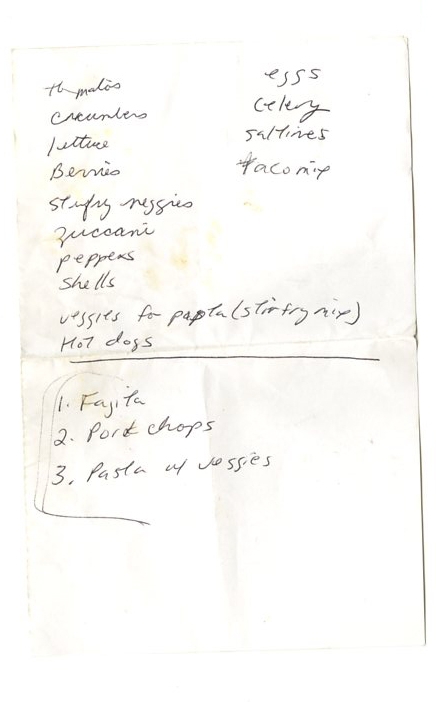 tomatos
cucumbers
lettuce
Berries
stirfry veggies
zuccani
peppers
shells
veggies for papta (stirfry mix)
Hot dogs
eggs
Celery
saltines
taco mix
1. Fajita
2. Pork chops
3. Pasta w/ veggies